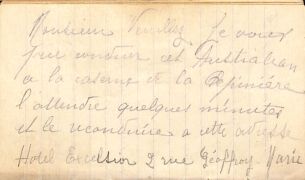 Monsieur Veuillez Je vous
prie conduir cet Australian
a la caserne de la Pepiniére
l'attendre quelques minutes
et le reconduire a cette adresse
Hotel Excelsior 2 rue Geoffroy Marie